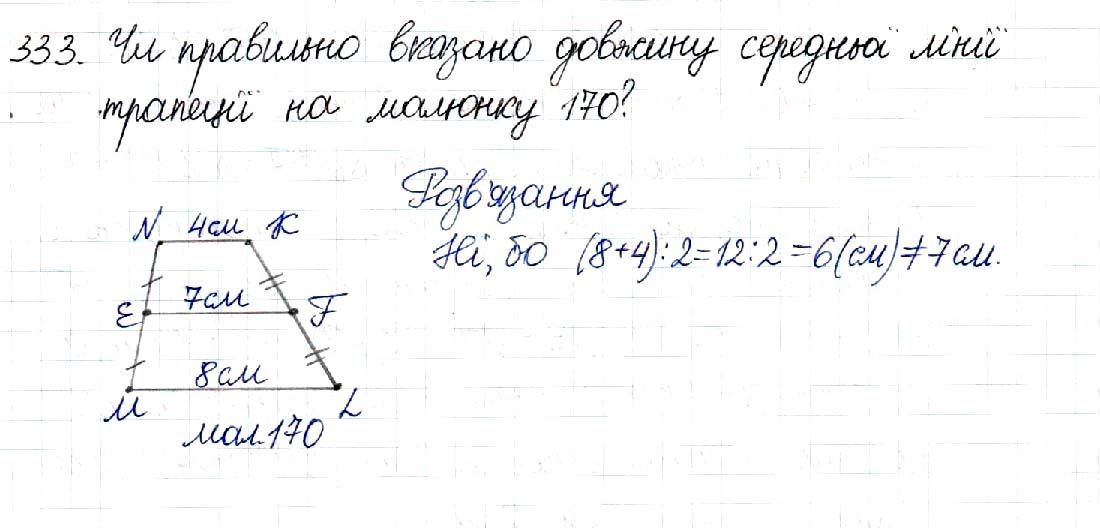 333. Чи правильно вказано довжину середньої лінії
трапеції на малюнку 170?
Розв'язання
Ні, бо (8+4):2=12:2=6(см)≠7см.
N 4см K
E 7см F
8см
M L
мал.170